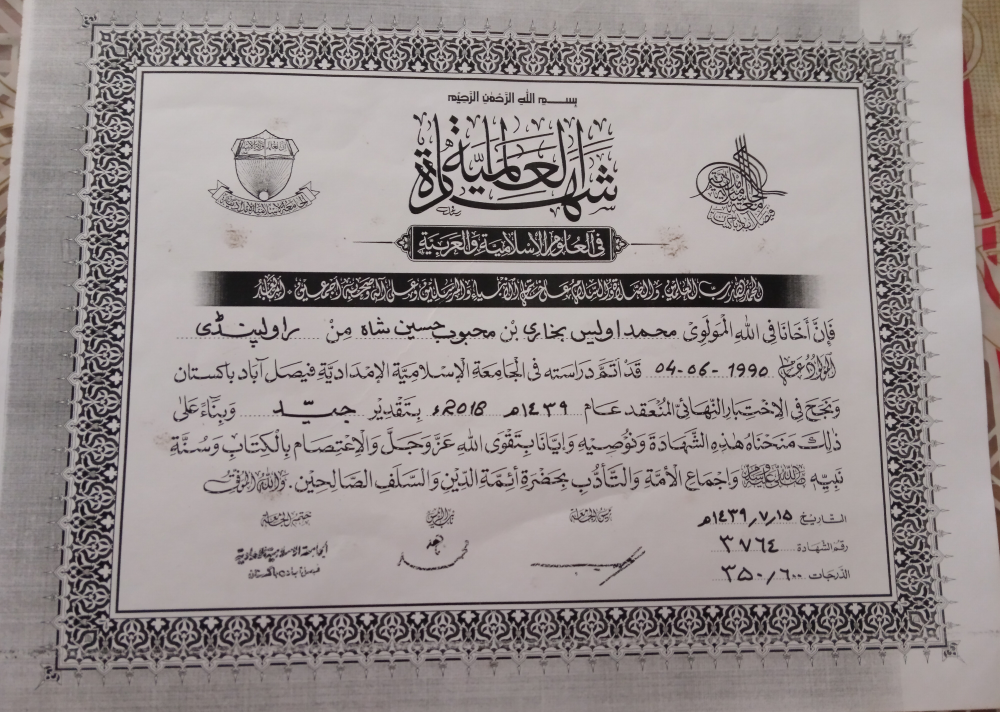 بسم الله الرحمن الرحيم
شهادة العالمية
في العلوم الإسلامية والعربية
الحمد لله رب العالمين والصلاة والسلام على سيد الأنبياء والمرسلين وعلى آله وصحبه أجمعين، أما بعد
فإن أخانا في الله المولوي محمد اويس بخاري بن محبوب حسين شاه من راولپنڈی
المولود عام 1990-06-04 قد أتم دراسته في الجامعة الإسلامية الإمدادية فيصل آباد باكستان
ونجح في الاختبار النهائي المنعقد عام ١٤٣٩هـ 2018ء بتقدير جيد وبناءً على
ذلك منحناه هذه الشهادة ونوصيه وإيانا بتقوى الله عز وجل والاعتصام بالكتاب وسنة
نبيه صلى الله عليه وسلم وإجماع الأمة والتأدب بحضرة أئمة الدين والسلف الصالحين. والله الموفق
التاريخ ١٤٣٩/٧/١٥هـ
رقم الشهادة ٣٧٦٤
الدرجات ٣٥٠/٦٠٠
رئيس الجامعة
نائب الرئيس
ختم الجامعة
الجامعة الإسلامية الإمدادية
فيصل آباد باكستان